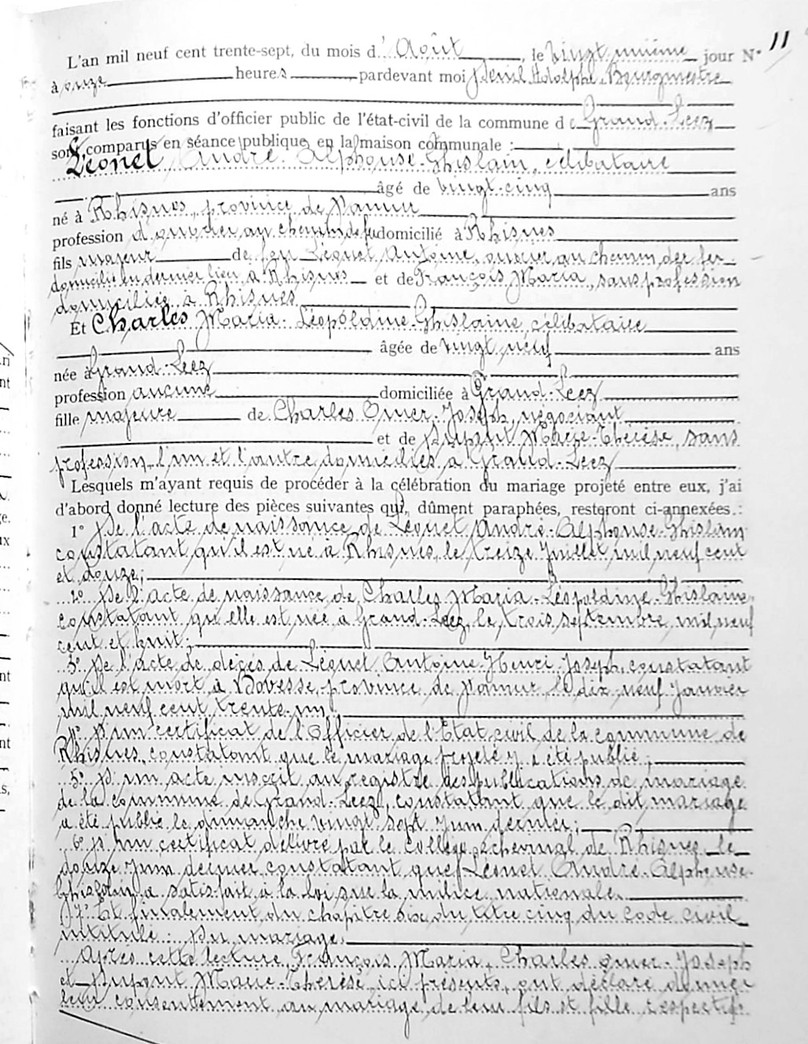 11
L'an mil neuf cent trente-sept, du mois d' Août, le vingt unième jour N°
à onze heures pardevant moi Adolphe, Bourgmestre
faisant les fonctions d'officier public de l'état-civil de la commune de Grand-Leez
sont comparus en séance publique, en la maison communale :
Léonet, André-Alphonse-Ghislain, célibataire
âgé de vingt-cinq ans
né à Rhisnes, province de Namur
profession d'ouvrier au chemin de fer domicilié à Rhisnes
fils majeur de feu Léonet, Antoine, ouvrier au chemin de fer
domicilié en dernier lieu à Rhisnes et de François Maria, sans profession
domiciliée à Rhisnes
Et Charles Maria-Léopoldine-Ghislaine, célibataire
âgée de vingt neuf ans
née à Grand-Leez
profession aucune domiciliée à Grand-Leez
fille majeure de Charles Omer-Joseph, négociant
et de Dupont Marie-Thérèse, sans
profession, l'un et l'autre domiciliés à Grand-Leez
Lesquels m'ayant requis de procéder à la célébration du mariage projeté entre eux, j'ai
d'abord donné lecture des pièces suivantes qui, dûment paraphées, resteront ci-annexées. :
1° De l'acte de naissance de Léonet, André-Alphonse-Ghislain
constatant qu'il est né à Rhisnes, le treize Juillet mil neuf cent
et douze;
2° De l'acte de naissance de Charles Maria-Léopoldine-Ghislaine,
constatant qu'elle est née à Grand-Leez, le trois septembre mil neuf
cent et huit;
3° De l'acte de décès de Léonet, Antoine-Henri-Joseph, constatant
qu'il est mort à Bovesse, province de Namur, le dix neuf Janvier
mil neuf cent trente-un;
4° D'un certificat de l'Officier de l'Etat civil de la commune de
Rhisnes, constatant que le mariage projeté y a été publié;
5° D'un acte inscrit au registre des publications de mariage
de la commune de Grand-Leez, constatant que le dit mariage
a été publié le dimanche vingt sept Juin dernier;
6° D'un certificat délivré par le Collège échevinal de Rhisnes le
douze Juin dernier constatant que Léonet André-Alphonse-
Ghislain a satisfait à la loi sur la milice nationale.
7° Et finalement du chapitre six du titre cinq du Code civil
intitulé : Du mariage.
Après cette lecture, François Maria, Charles Omer-Joseph
et Dupont Marie-Thérèse, ici présents, ont déclaré donner
leur consentement au mariage de leur fils et fille respectifs